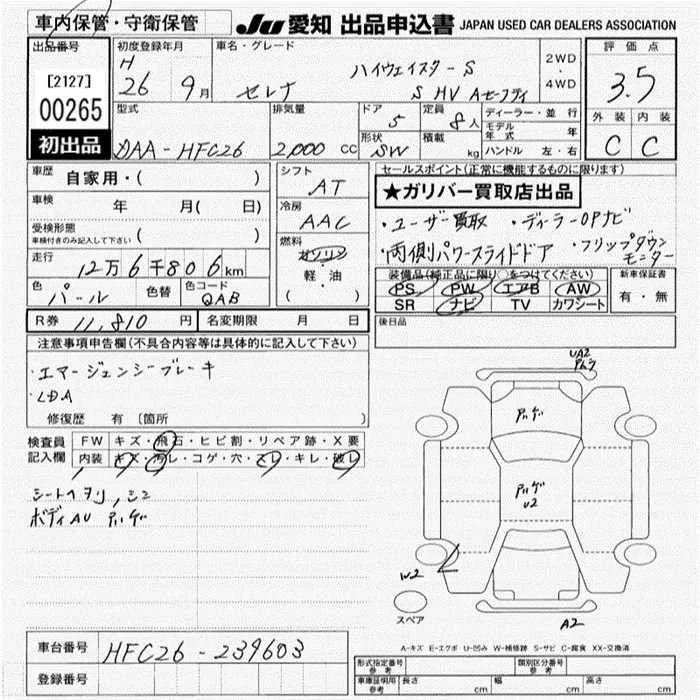 車内保管・守衛保管
JU 愛知 出品申込書 JAPAN USED CAR DEALERS ASSOCIATION
出品番号 [2127] 00265 初出品
初度登録年月 H 26 9月
車名・グレード セレナ ハイウェイスターS
S HV Aセーフティ
2WD・4WD
評価点 3.5
外装 内装
C C
型式 DAA-HFC26
排気量 2,000 cc
ドア 5
定員 8人
形状 SW
積載 kg
ディーラー・並行
モデル年式 年
ハンドル 左・右
車歴 自家用・( )
車検 年 月( 日)
受検形態 車検付きのみ記入して下さい ( )
走行 12万6千806km
色 パール 色替 色コード QAB
シフト AT
冷房 AAC
燃料 ガソリン・軽・油 ( )
セールスポイント(正常に機能するものに限ります)
★ガリバー買取店出品
・ユーザー買取 ・ディーラーOPナビ
・両側パワースライドドア ・フリップダウンモニター
装備品(純正品に限り○をつけてください)
PS PW エアB AW
SR ナビ TV カワシート
新車保証書 有・無
R券 11,810円 名変期限 月 日
後日品
注意事項申告欄(不具合内容等は具体的に記入して下さい)
・エマージェンシーブレーキ
・LDA
修復歴 有 〔箇所 〕
検査員記入欄 FW キズ・飛石・ヒビ割・リペア跡・X要
内装 キズ・汚レ・コゲ・穴・スレ・キレ・破レ
シートヘタリ,シミ
ボディAU
UA2
U2
W2
スペア
A2
A-キズ E-エクボ U-凹み W-補修跡 S-サビ C-腐食 XX-交換済
車台番号 HFC26-239603
登録番号
形式指定番号 参考 類別区分番号 参考
車庫証明用 参考 長さ cm 幅 cm 高さ cm